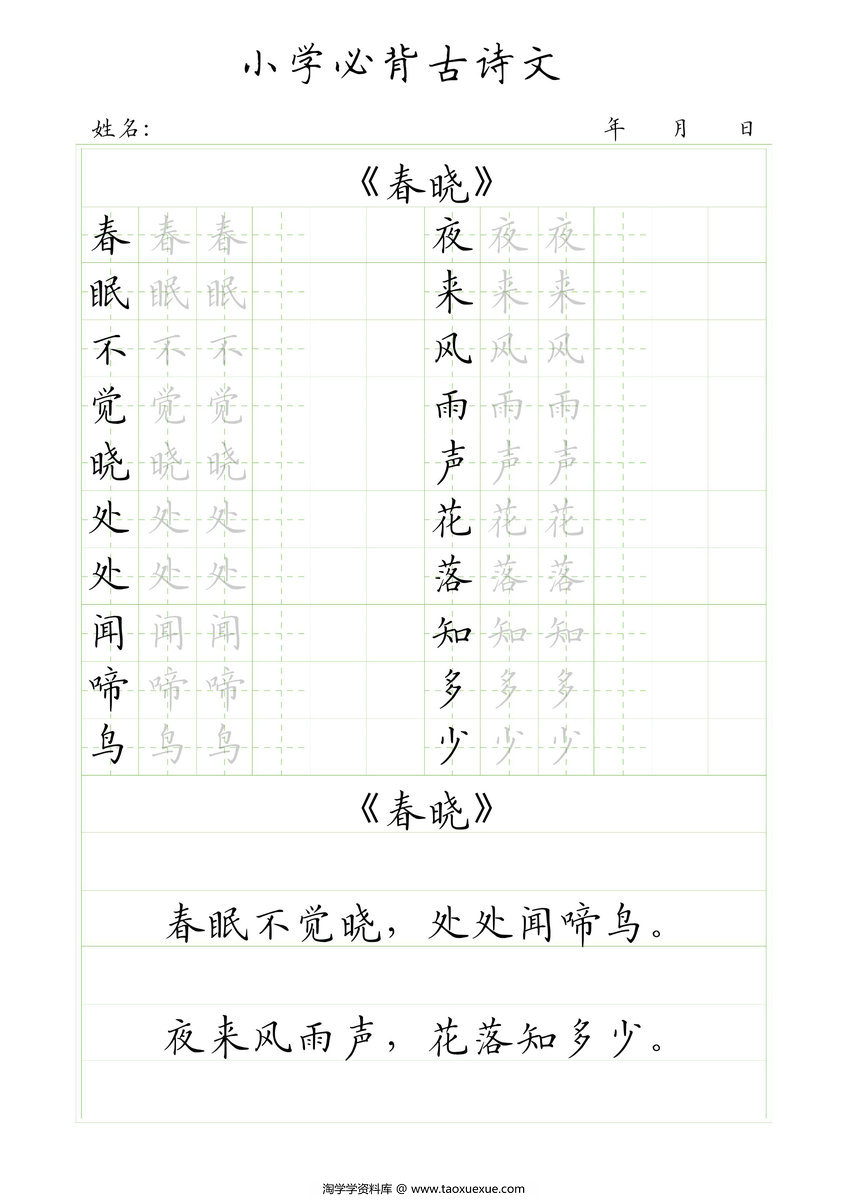 小学必背古诗文
姓名: 年 月 日
《春晓》
春 春 春 夜 夜 夜
眠 眠 眠 来 来 来
不 不 不 风 风 风
觉 觉 觉 雨 雨 雨
晓 晓 晓 声 声 声
处 处 处 花 花 花
处 处 处 落 落 落
闻 闻 闻 知 知 知
啼 啼 啼 多 多 多
鸟 鸟 鸟 少 少 少
《春晓》
春眠不觉晓，处处闻啼鸟。
夜来风雨声，花落知多少。
淘学学资料库 @ www.taoxuexue.com